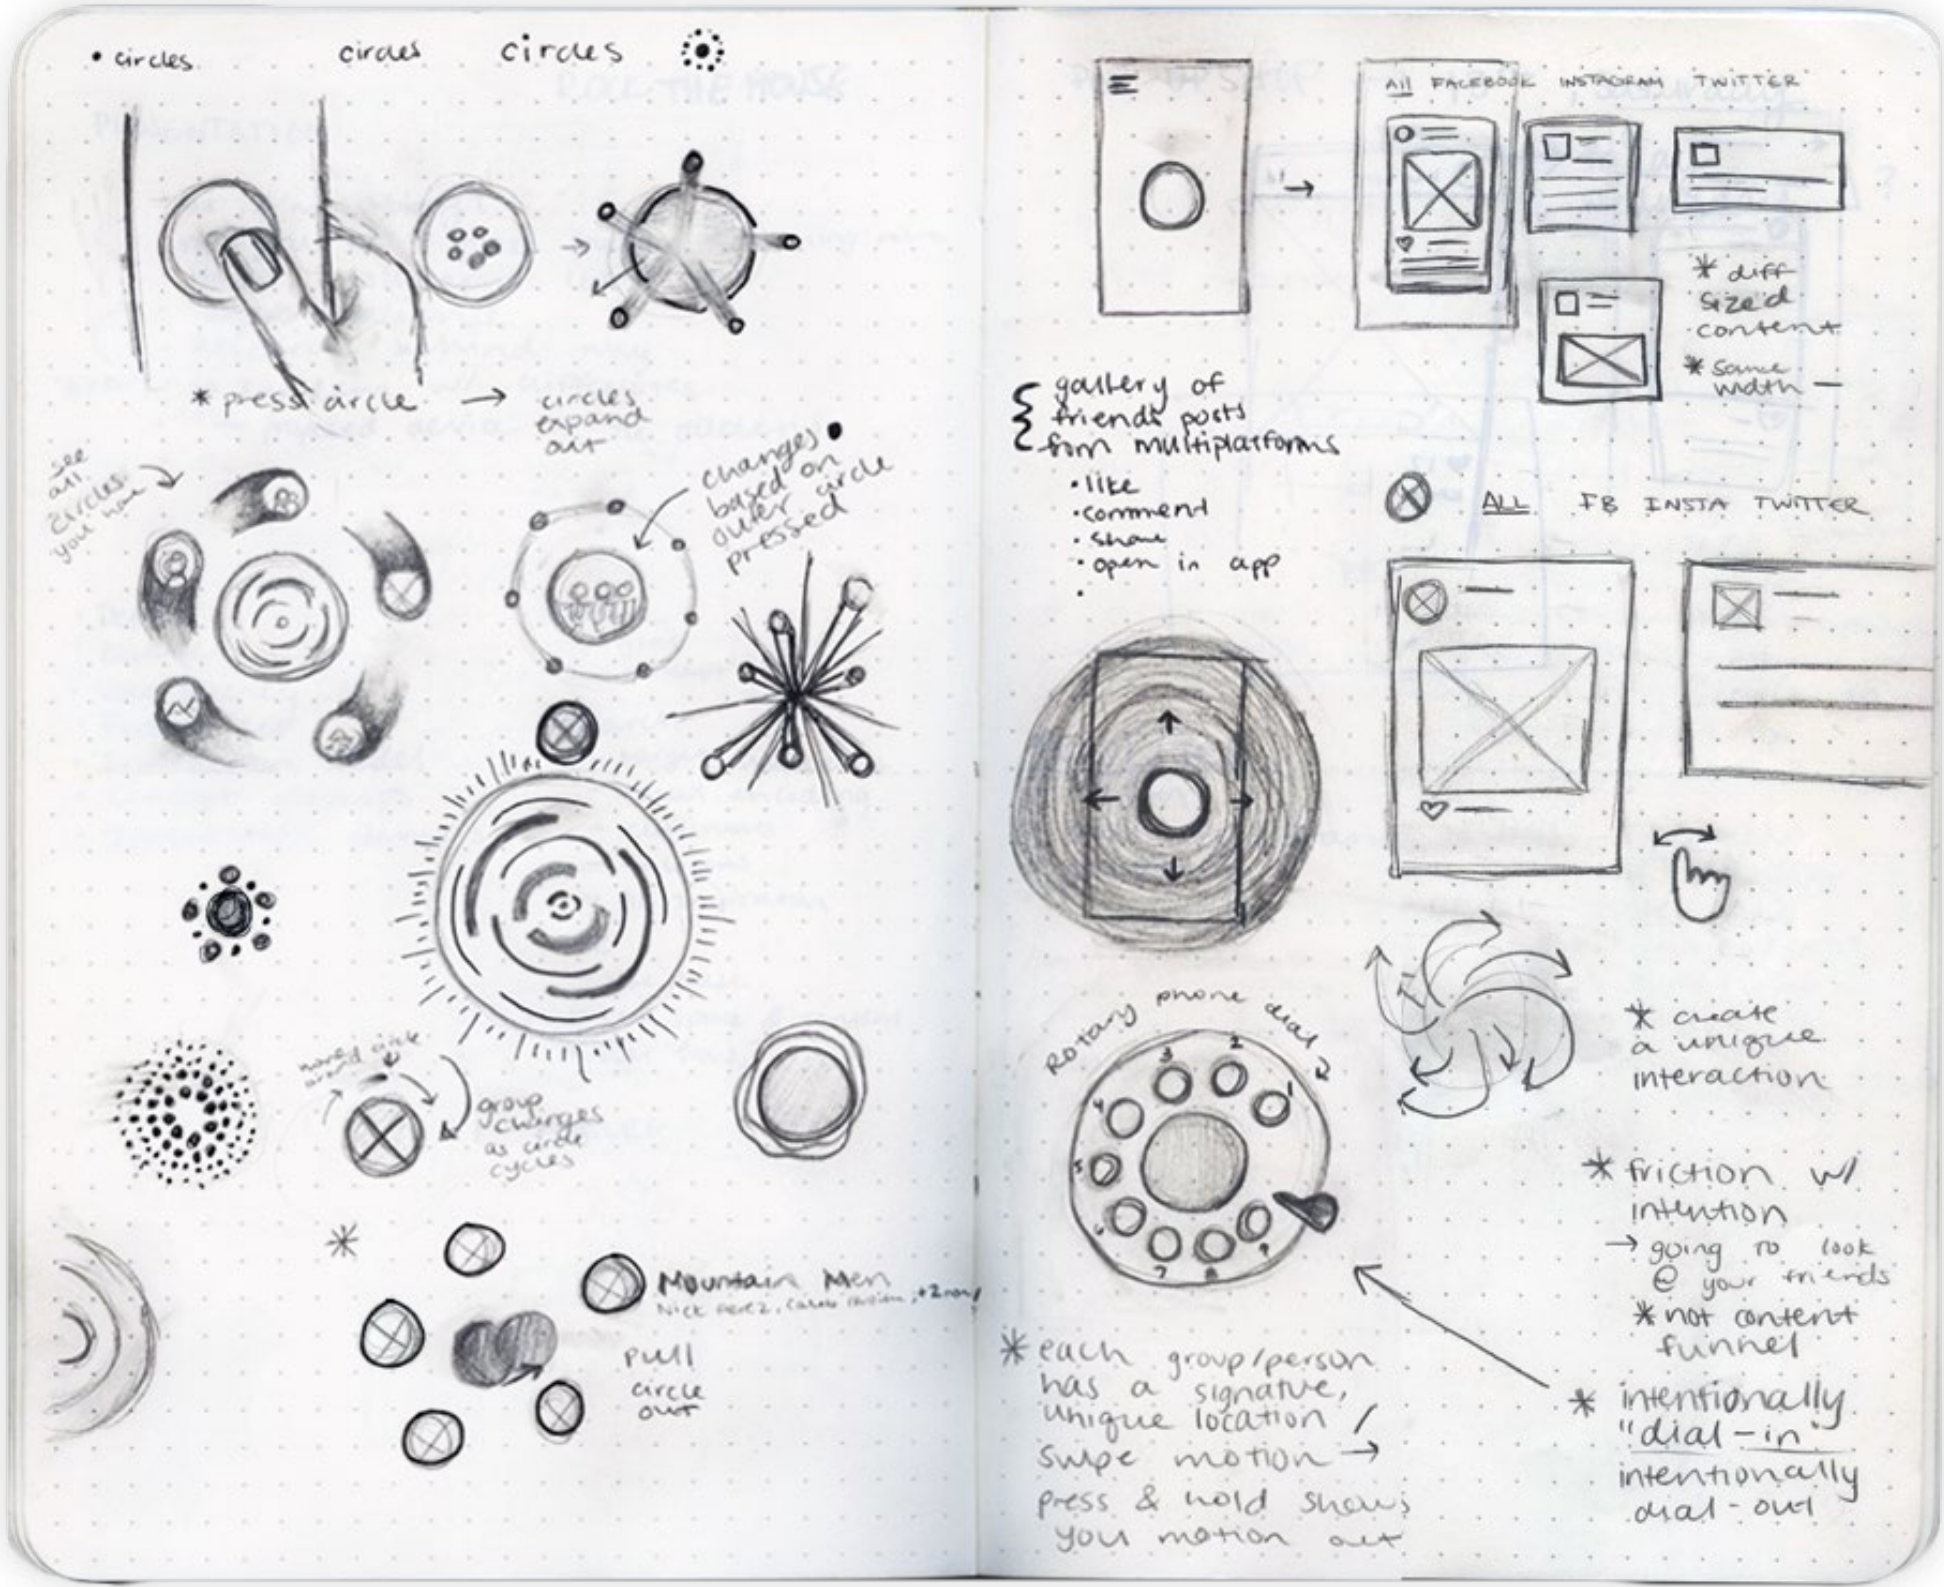 • circles circles circles
* press circle → circles
expand
out
see
all
circles
you have
changes
based on
outer circle
pressed
move circle
around
group
changes
as circle
cycles
*
Mountain Men
Nick Perez, Caleb , +2 more
pull
circle
out
All FACEBOOK INSTAGRAM TWITTER
* diff
sized
content
* same
width —
gallery of
friends posts
from multiplatforms
• like
• comment
• share
• open in app
•
ALL FB INSTA TWITTER
* create
a unique
interaction
Rotary phone dial
1
2
3
4
5
6
7
8
9
* friction w/
intention
→ going to look
@ your friends
* not content
funnel
* intentionally
"dial-in"
intentionally
dial-out
* each group/person
has a signature,
unique location /
swipe motion →
press & hold shows
you motion out